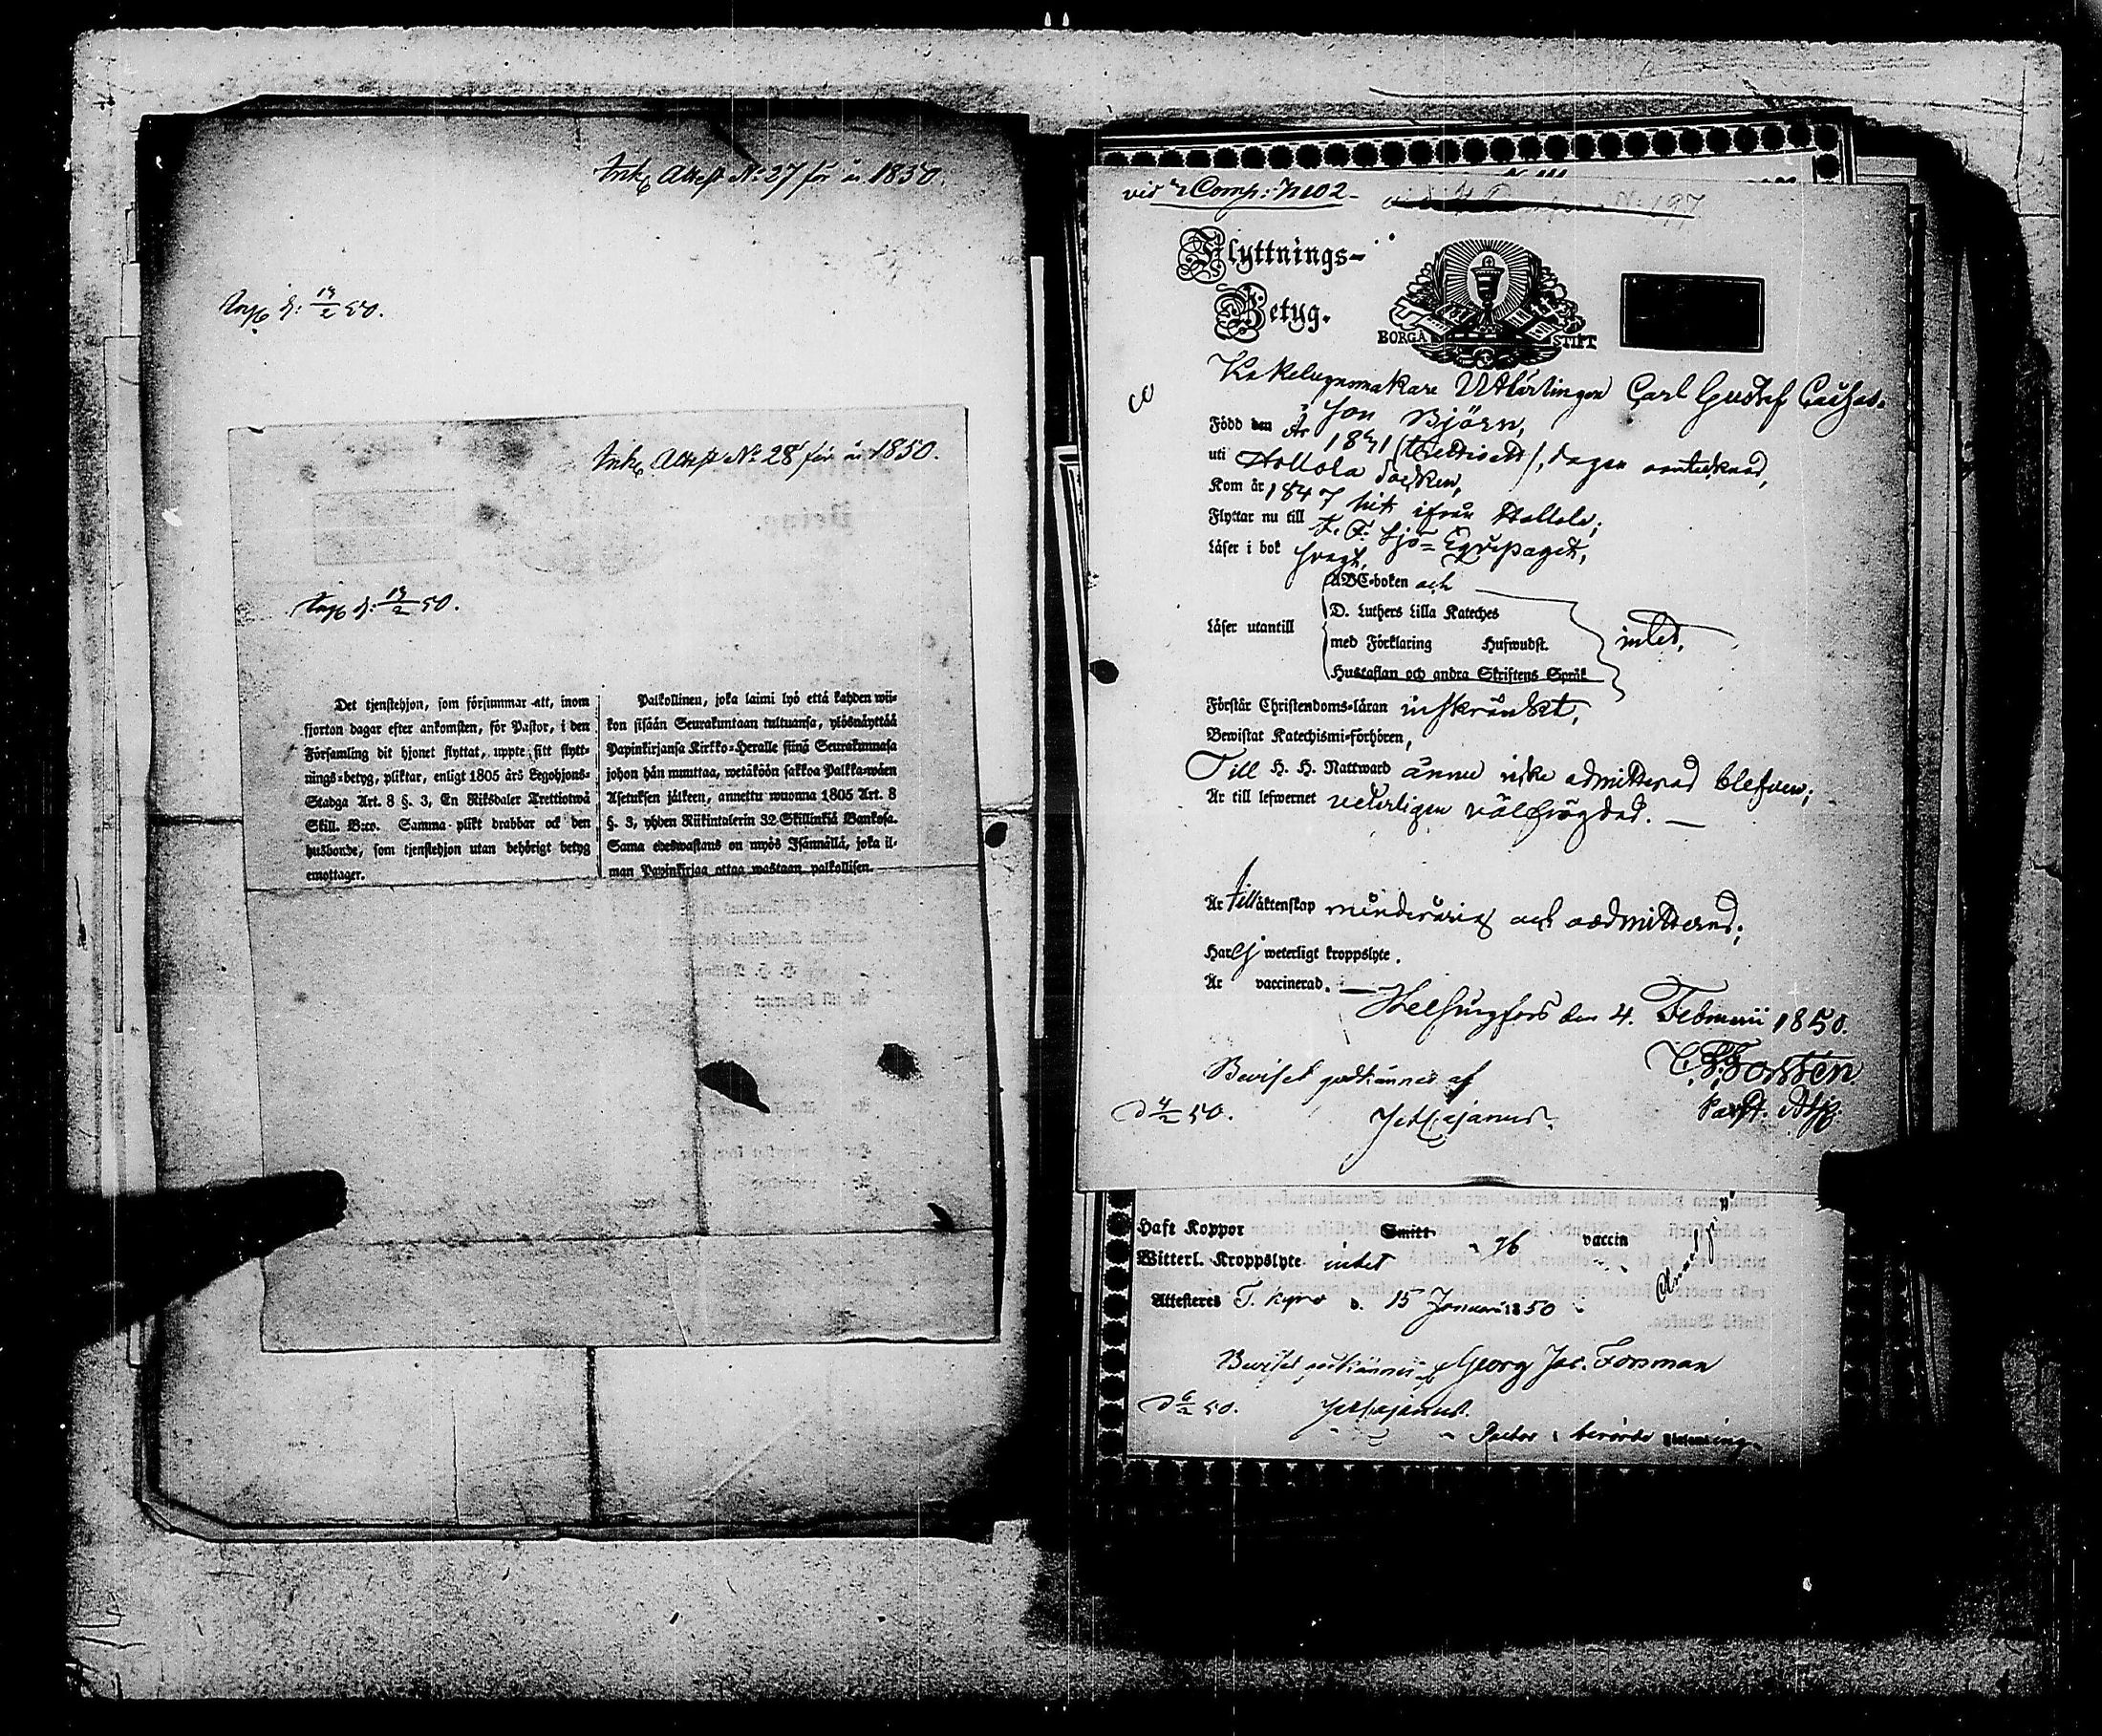 Ink. Attest No 27 för år 1850.
d: 19/2 50.
Ink. Attest No 28 för år 1850.
d: 19/2 50.
Det tjenstehjon, som försummar att, inom
fjorton dagar efter ankomsten, för Pastor, i den
Församling dit hjonet flyttat, uppte sitt flytt-
nings-betyg, pliktar, enligt 1805 års Legohjons-
Stadga Art. 8 §. 3, En Riksdaler Trettiotwå
Skill. B:co. Samma plikt drabbar ock den
husbonde, som tjenstehjon utan behörigt betyg
emottager.
Palkollinen, joka laimi lyö että kahden wii-
kon sisään Seurakuntaan tultuansa, ylösnäyttää
Papinkirjansa Kirkko-Heralle siinä Seurakunnasa
johon hän muuttaa, wetäköön sakkoa Palkka-wäen
Asetuksen jälkeen, annettu wuonna 1805 Art. 8
§. 3, yhden Riikintalerin 32 Skillinkiä Bankosa.
Sama edeswastaus on myös Isännällä, joka il-
man Papinkirjaa ottaa wastaan palkollisen.
vid 2 Comp: No 02.
No 197
Flyttnings-
Betyg.
BORGÅ STIFT
Kakelugnsmakare Utlärlingen Carl Gustaf
son Björn,
Född den år 1831 dagen oantecknad,
uti Hollola Socken,
Kom år 1847 hit ifrån Hollola;
Flyttar nu till Sjö-Equipaget,
Läser i bok svagt,
ABC-boken och
D. Luthers Lilla Kateches
Läser utantill
med Förklaring Hufwudst.
intet,
Hustaflan och andra Skriftens Språk
Förstår Christendoms-läran inskränkt,
Bewistat Katechismi-förhören,
Till H. H. Nattward ännu icke admitterad blefven;
Är till lefwernet veterligen välfrägdad.
Är till äktenskap minderårig och oadmitterad;
Har ej weterligt kroppslyte.
Är vaccinerad.
Helsingfors den 4. Februarii 1850.
Forstén
Beviset godkännes af
d 4/2 50.
Haft Koppor Smitt vaccin
Witterl. Kroppslyte intet
Attesteres T. Kyro d. 15 Januari 1850
Beviset godkännes af Georg Jac. Forsman
d 6/2 50.
Pastor i berörde